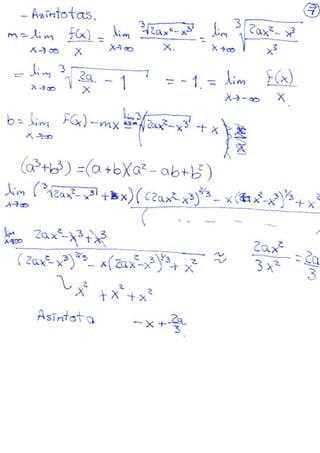 - Asíntotas. 7
m = lim x→∞ f(x)/x = lim x→∞ ∛(2ax²-x³)/x. = lim x→∞ ∛((2ax²-x³)/x³)
= lim x→∞ ∛(2a/x - 1) = -1. = lim x→-∞ f(x)/x.
b = lim x→∞ f(x) - mx = lim (∛(2ax²-x³) + x)
(a³+b³) = (a+b)(a²-ab+b²)
lim x→∞ (∛(2ax²-x³) + x)((2ax²-x³)^2/3 - x(2ax²-x³)^1/3 + x²
( - - - -
lim x→∞ (2ax²-x³+x³)/((2ax²-x³)^2/3 - x(2ax²-x³)^1/3 + x²) ≈ 2ax²/3x² = 2a/3
x² + x² + x²
Asíntota -x + 2a/3.